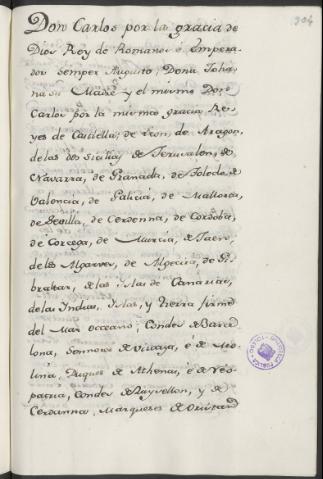 304
Don Carlos por la gracia de
Dios Rey de Romanos é Empera-
dor semper Augusto; Doña Joha-
na su Madre y el mismo Don
Carlos por la misma gracia Re-
yes de Castilla, de Leon, de Aragon,
de las dos Sicilias, de Jerusalen, de
Navarra, de Granada, de Toledo, de
Valencia, de Galicia, de Mallorca,
de Sevilla, de Cerdenna, de Cordoba,
de Corcega, de Murcia, de Jaen,
de los Algarves, de Algecira, de Gi-
braltar, de las Islas de Canarias,
de las Indias, Islas, y tierra firme
del Mar occeano, Condes de Barce-
lona, Sennores de Vizcaya, é de Mo-
lina, Duques de Athenas, é de Neo-
patria, Condes de Ruysellon, y de
Cerdanna, Marqueses de Oristan